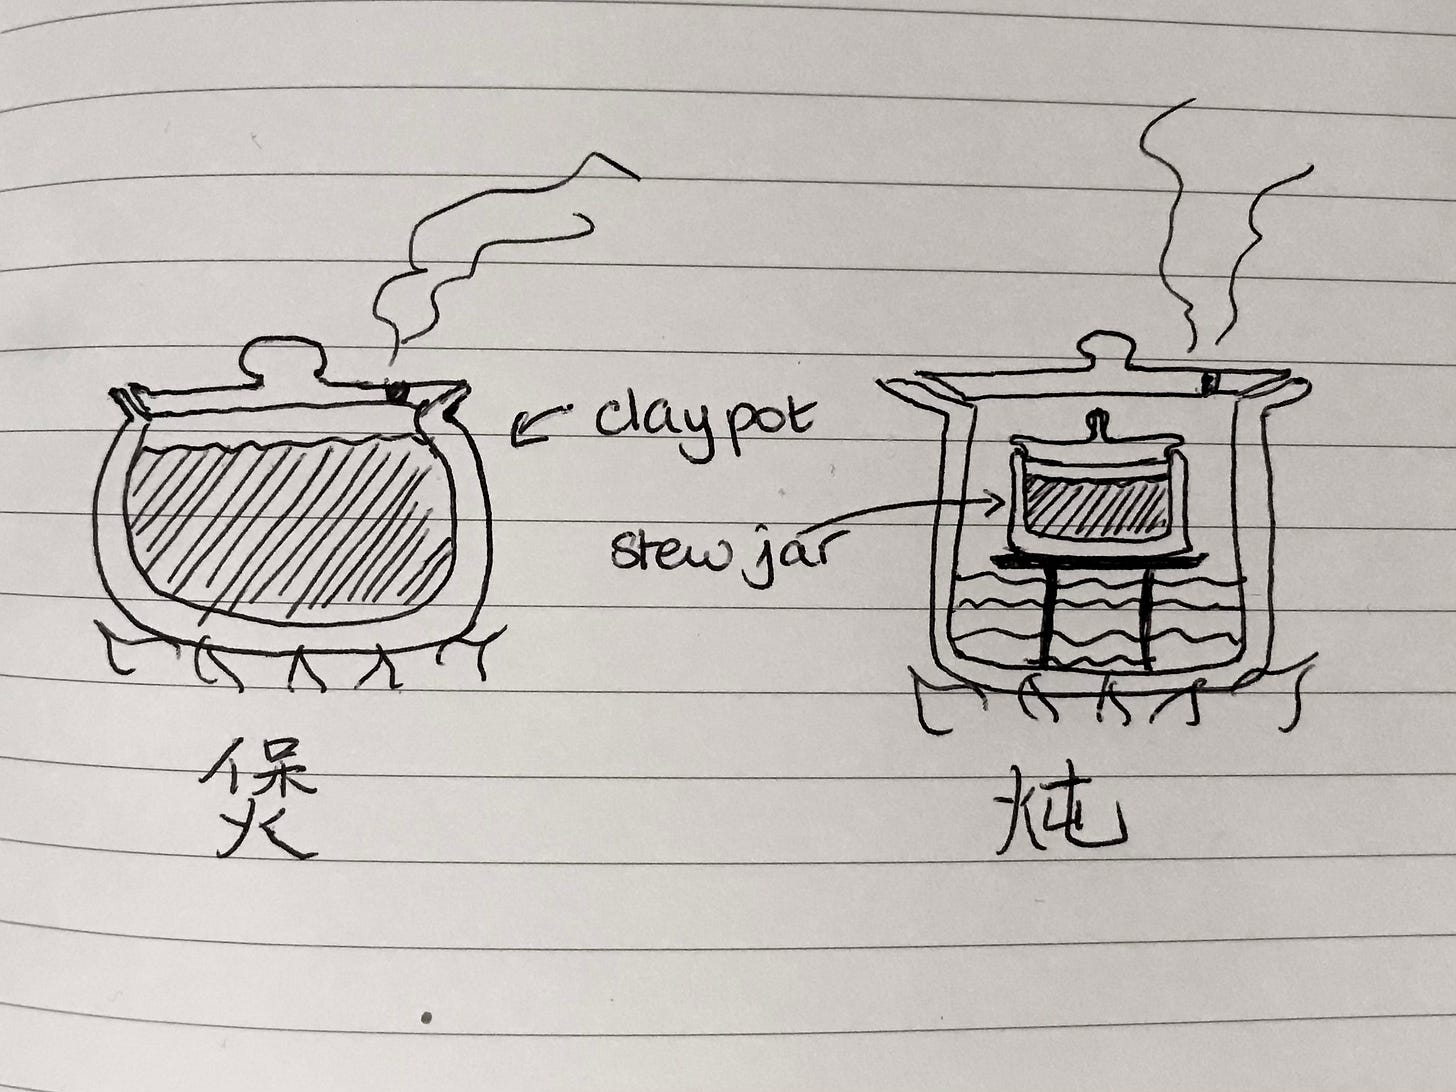 clay pot
stew jar
煲
炖